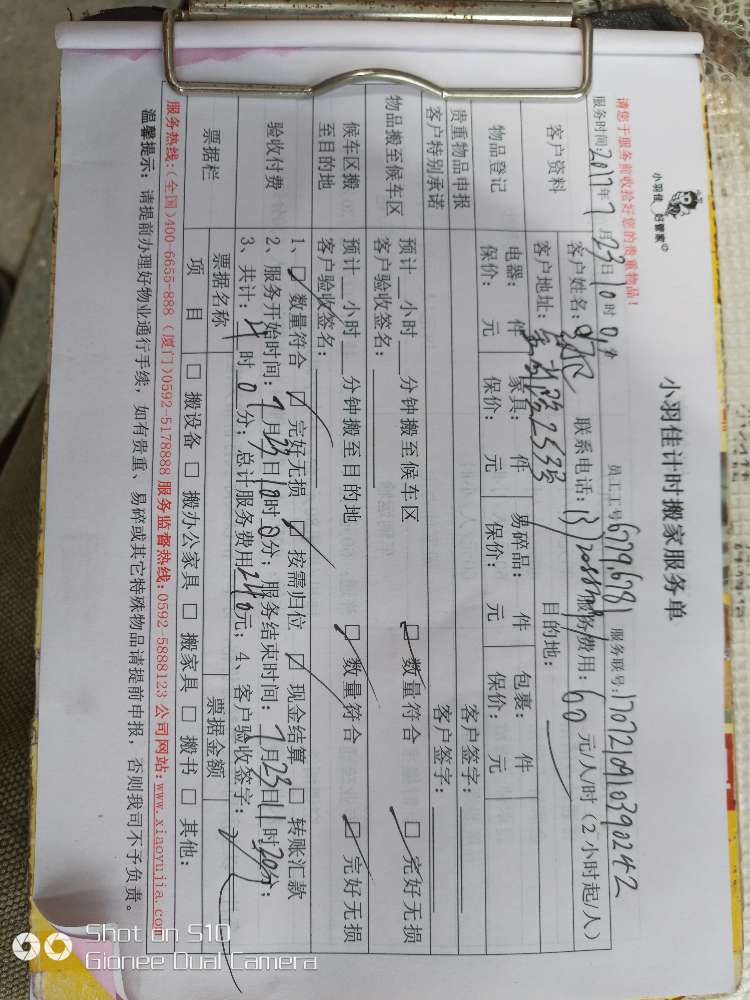 小羽佳 好管家
小羽佳计时搬家服务单
请您于服务前收拾好您的贵重物品！
员工工号 679,681 服务联号:1707210910390242
服务时间: 2017年7月23日10时0分
客户资料
客户姓名: 联系电话: 服务费用: 60 元/人/时（2小时起/人）
客户地址: 2533 目的地:
物品登记
电器: 件 家具: 件 易碎品: 件 包裹: 件
保价: 元 保价: 元 保价: 元 保价: 元
贵重物品申报 客户签字:
客户特别承诺 客户签字:
物品搬至候车区
预计__小时__分钟搬至候车区 □ 数量符合 □ 完好无损
客户验收签名:
候车区搬至目的地
预计__小时__分钟搬至目的地 □ 数量符合 □ 完好无损
客户验收签名:
验收付费
1、□ 数量符合 □ 完好无损 □ 按需归位 □ 现金结算 □ 转账汇款
2、服务开始时间: 7月23日10时0分; 服务结束时间: 7月23日11时20分;
3、共计: 4时0分; 总计服务费用240元; 4、客户验收签字:
票据栏
票据名称 票据金额
项 目 □ 搬设备 □ 搬办公家具 □ 搬家具 □ 搬书 □ 其他:
服务热线:(全国)400-6655-888 (厦门)0592-5178888 服务监督热线:0592-5888133 公司网站:www.xiaoyujia.com
温馨提示: 请提前办理好物业通行手续, 如有贵重、易碎或其它特殊物品请提前申报, 否则我司不予负责。
Shot on S10
Gionee Dual Camera